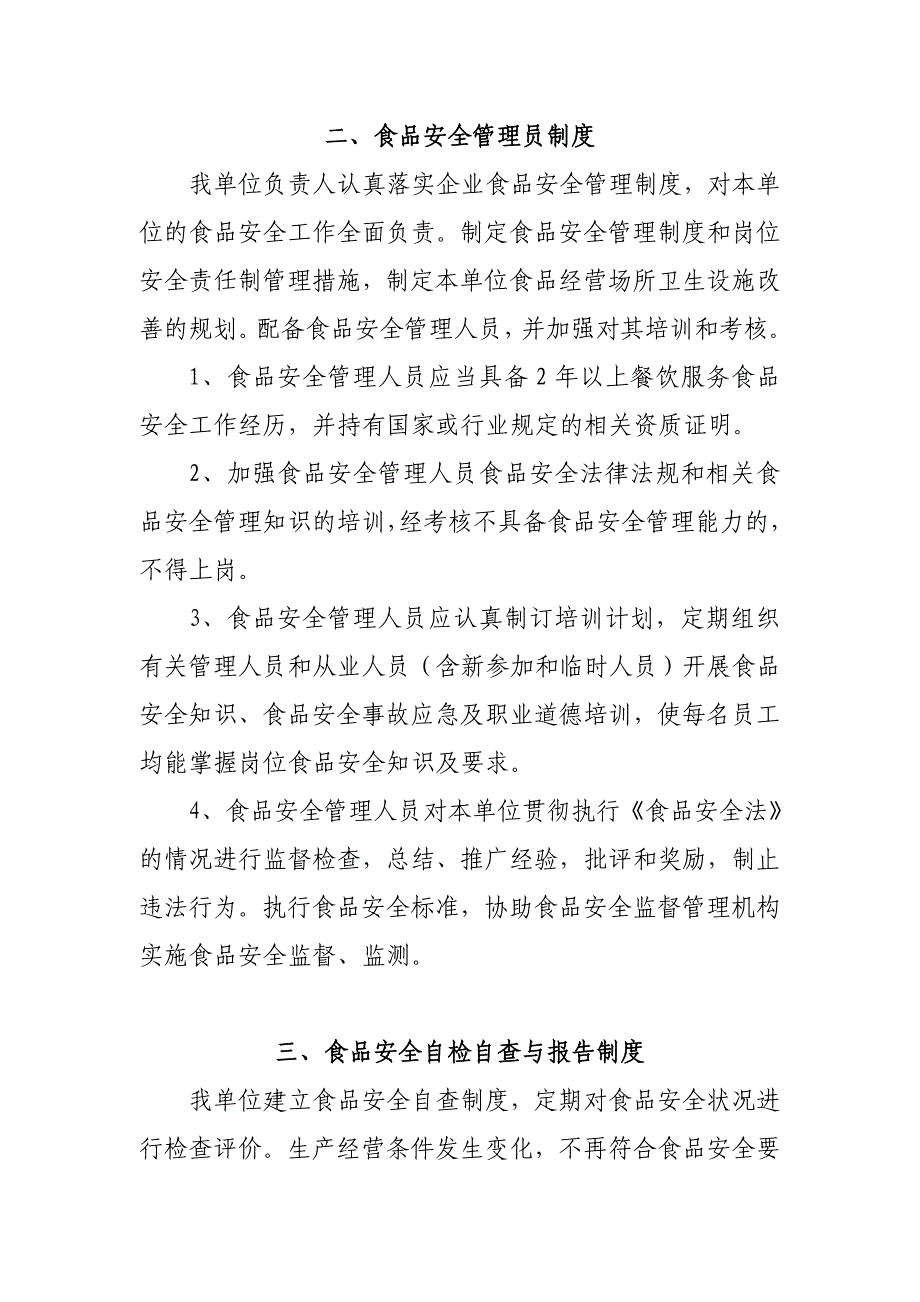 二、食品安全管理员制度
我单位负责人认真落实企业食品安全管理制度，对本单
位的食品安全工作全面负责。制定食品安全管理制度和岗位
安全责任制管理措施，制定本单位食品经营场所卫生设施改
善的规划。配备食品安全管理人员，并加强对其培训和考核。
1、食品安全管理人员应当具备 2 年以上餐饮服务食品
安全工作经历，并持有国家或行业规定的相关资质证明。
2、加强食品安全管理人员食品安全法律法规和相关食
品安全管理知识的培训，经考核不具备食品安全管理能力的，
不得上岗。
3、食品安全管理人员应认真制订培训计划，定期组织
有关管理人员和从业人员（含新参加和临时人员）开展食品
安全知识、食品安全事故应急及职业道德培训，使每名员工
均能掌握岗位食品安全知识及要求。
4、食品安全管理人员对本单位贯彻执行《食品安全法》
的情况进行监督检查，总结、推广经验，批评和奖励，制止
违法行为。执行食品安全标准，协助食品安全监督管理机构
实施食品安全监督、监测。
三、食品安全自检自查与报告制度
我单位建立食品安全自查制度，定期对食品安全状况进
行检查评价。生产经营条件发生变化，不再符合食品安全要